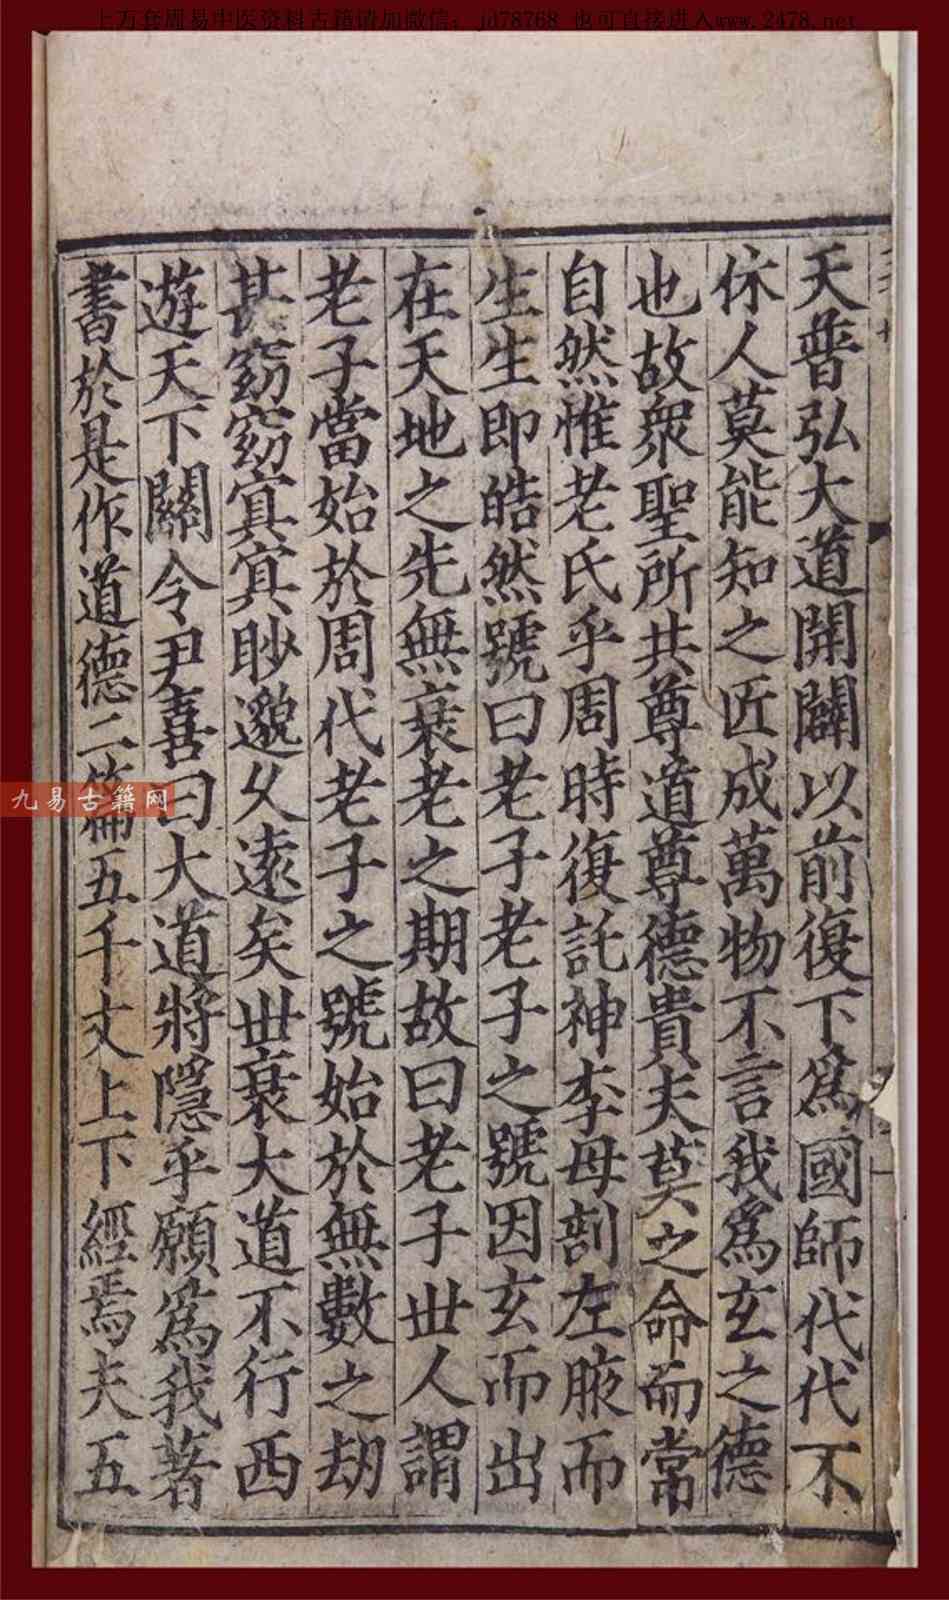 上万套周易中医资料古籍请加微信：jd78768 也可直接进入www.2478.net
天普弘大道開闢以前復下為國師代代不
休人莫能知之匠成萬物不言我為玄之德
也故眾聖所共尊道尊德貴夫莫之命而常
自然惟老氏乎周時復託神李母剖左腋而
生生即皓然號曰老子老子之號因玄而出
在天地之先無衰老之期故曰老子世人謂
老子當始於周代老子之號始於無數之劫
甚窈窈冥冥眇邈久遠矣世衰大道不行西
遊天下關令尹喜曰大道將隱乎願為我著
書於是作道德二篇五千文上下經焉夫五
九易古籍网